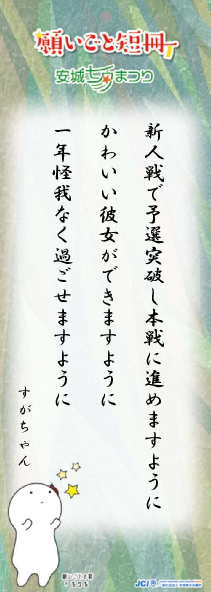 願いごと短冊
安城七夕まつり
新人戦で予選突破し本戦に進めますように
かわいい彼女ができますように
一年怪我なく過ごせますように
すがちゃん
JCI